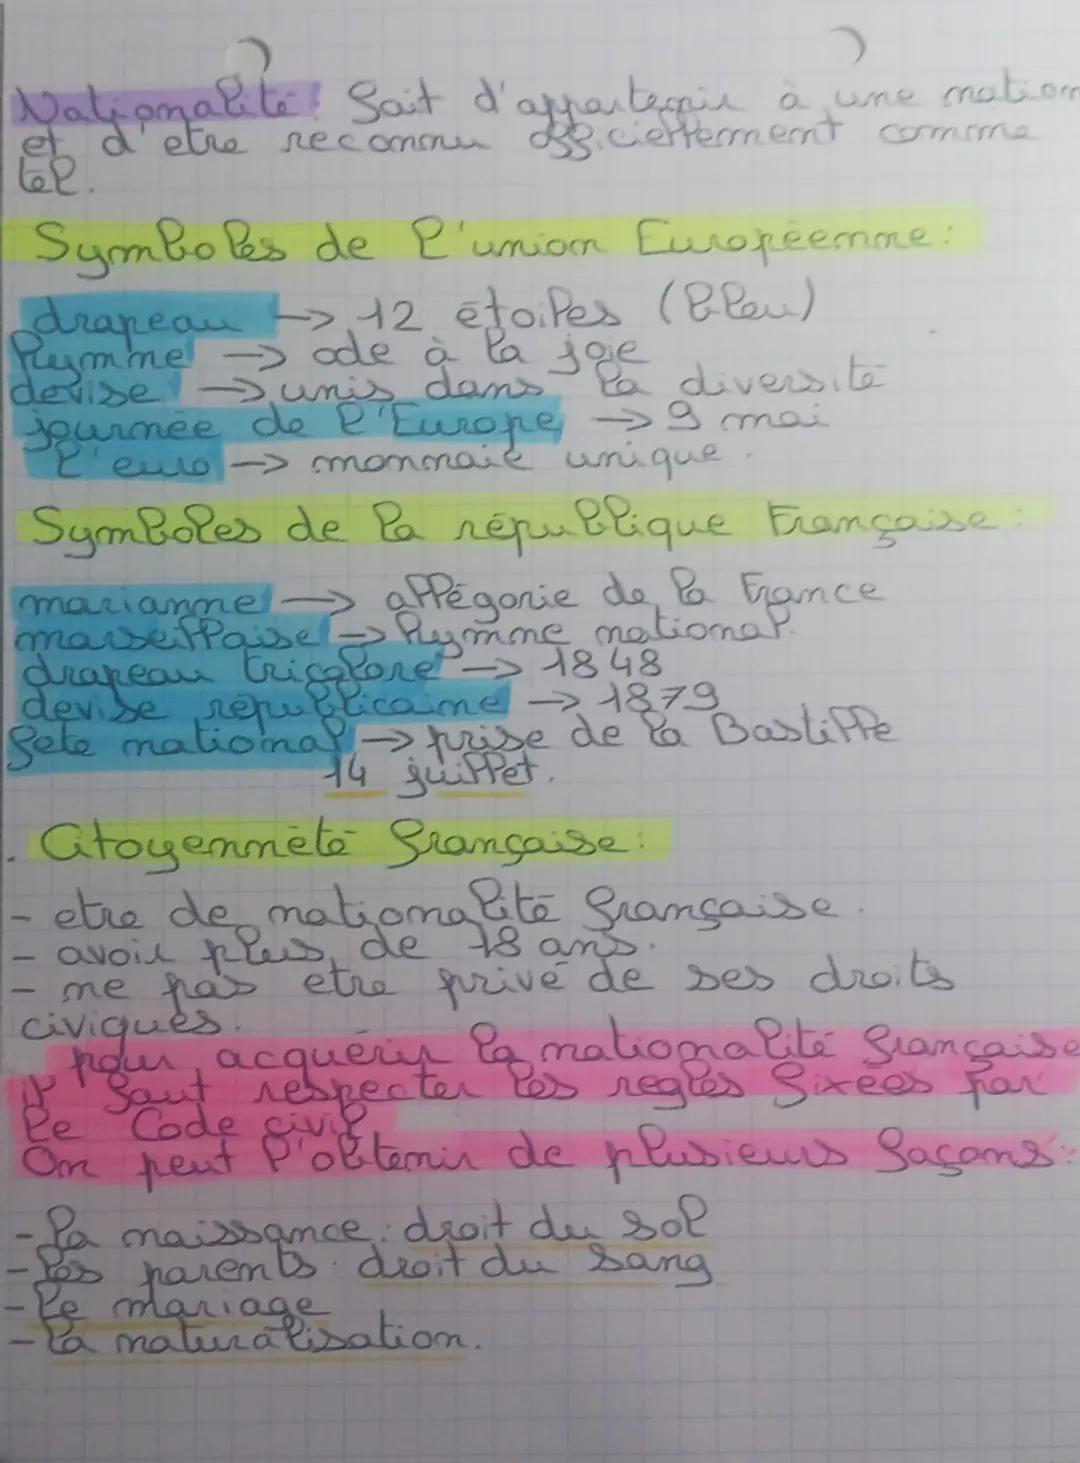 Nationalité: fait d'appartenir à une nation
et d'etre reconnu officiellement comme
tel.
Symboles de l'union Européenne:
drapeau → 12 étoiles (bleu)
hymme → ode à la joie
devise → unis dans la diversité
journée de l'Europe → 9 mai
l'euro → monnaie unique.
Symboles de la république Française:
marianne → allégorie de la France
marseillaise → hymne national.
drapeau tricolore → 1848
devise républicaine → 1879
fete national → prise de la Bastille
14 juillet.
. Citoyennété française:
- etre de nationalité française.
- avoir plus de 18 ans.
- ne pas etre privé de ses droits
civiques.
pour acquérir la nationalité française
il faut respecter les regles fixées par
le Code civil
On peut l'obtenir de plusieurs façons:
- la naissance: droit du sol
- les parents: droit du sang
- le mariage
- la naturalisation.